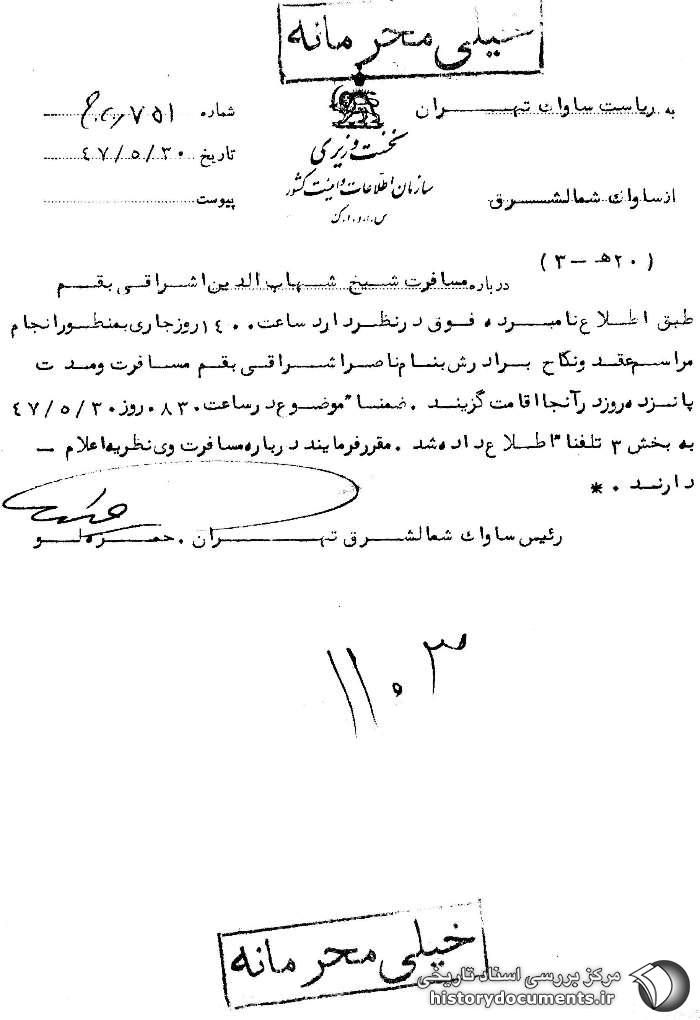 خیلی محرمانه
به ریاست ساواک تهــــران
شماره ۷۵۱
نخست وزیری
تاریخ ۴۷/۵/۳۰
سازمان اطلاعات و امنیت کشور
از ساواک شمالشــرق
پیوست
س.ا.و.ا.ک
(۲۰هـ –۳)
درباره مسافرت شیخ شهاب الدین اشراقی بقــم
طبق اطلاع نامبرده فوق در نظر دارد ساعت ۱۴۰۰ روز جاری بمنظور انجام
مراسم عقد و نکاح برادرش بنام ناصر اشراقی بقم مسافرت و مدت
پانزده روز در آنجا اقامت گزیند . ضمنا" موضوع در ساعت ۰۸۳۰ روز ۴۷/۵/۳۰
به بخش ۳ تلفنا" اطلاع داده شد . مقرر فرمایند درباره مسافرت وی نظریه اعلام –
دارنــد . *
رئیس ساواک شمالشــرق تهــــران . حمــزه لــو
۱۱۰۳
خیلی محرمانه
مرکز بررسی اسناد تاریخی
historydocuments.ir